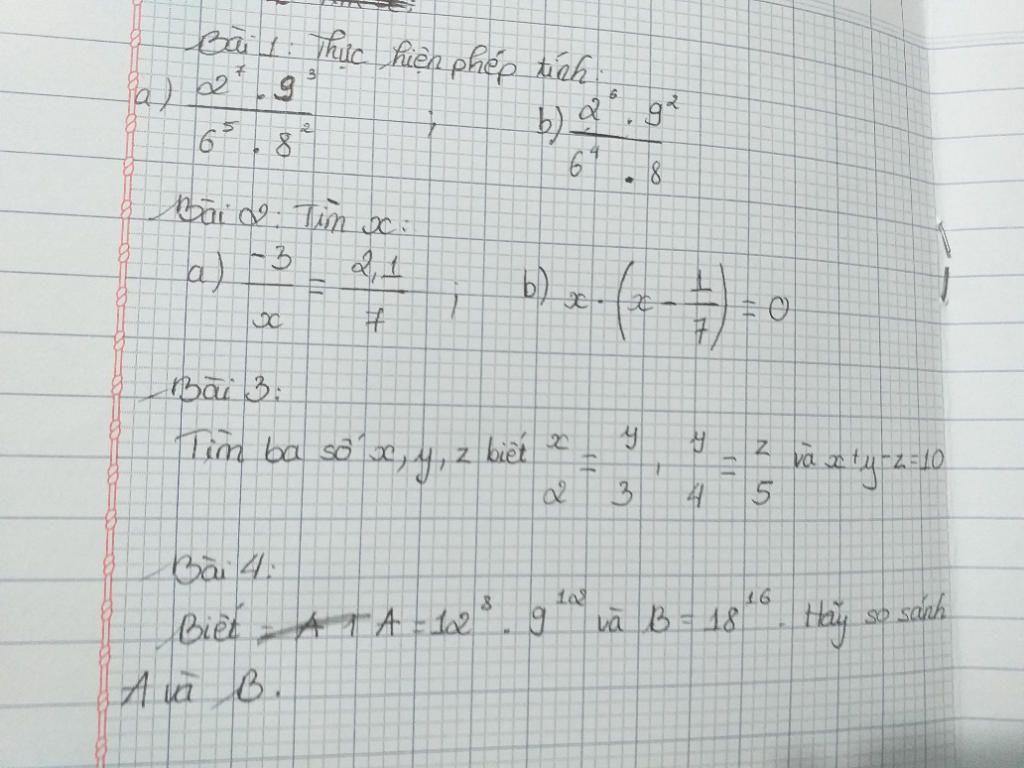 Bài 1: Thực hiện phép tính:
a) \frac{2^7 . 9^3}{6^5 . 8^2} ; b) \frac{2^6 . 9^2}{6^4 . 8}
Bài 2: Tìm x:
a) \frac{-3}{x} = \frac{2,1}{7} ; b) x . (x - \frac{1}{7}) = 0
Bài 3:
Tìm ba số x, y, z biết \frac{x}{2} = \frac{y}{3} , \frac{y}{4} = \frac{z}{5} và x + y - z = 10
Bài 4:
Biết A = 12^8 . 9^{12} và B = 18^{16} . Hãy so sánh
A và B.